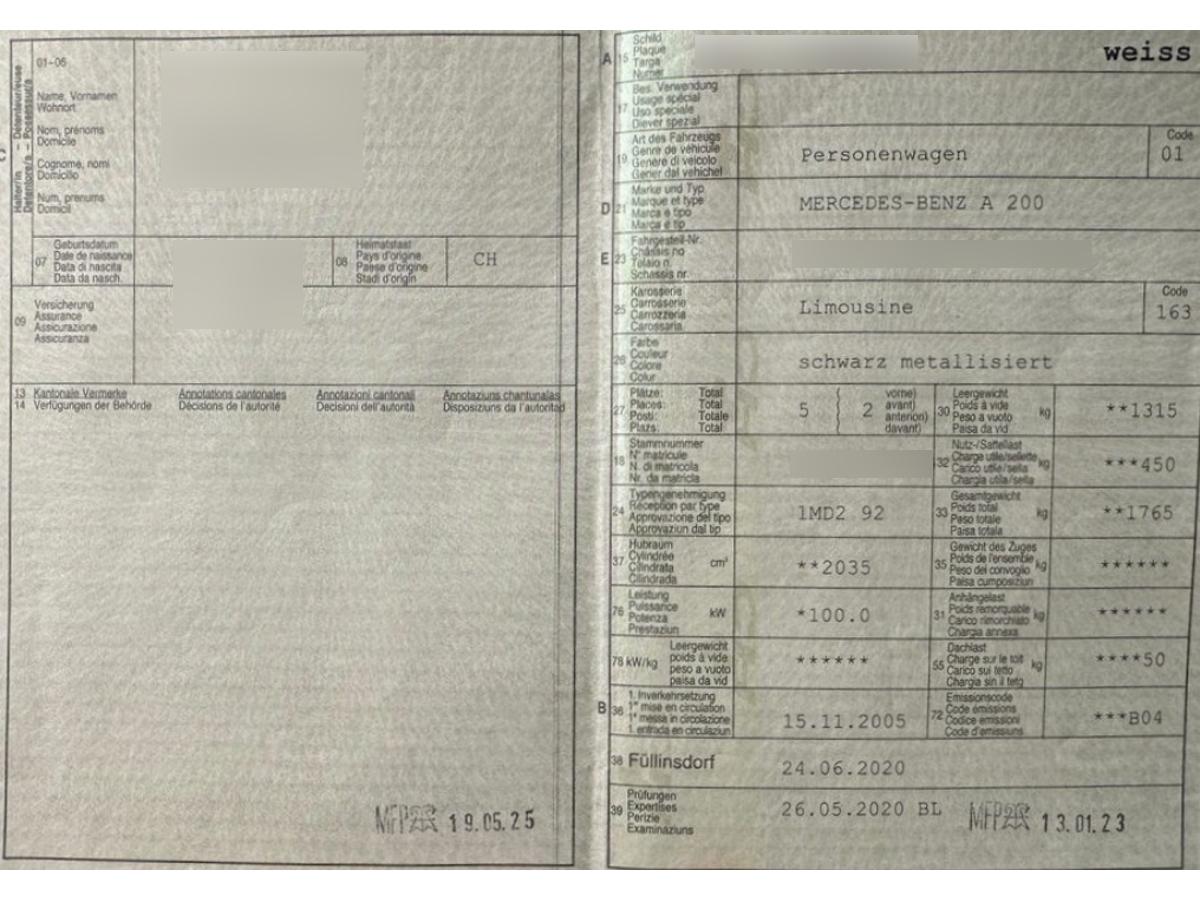 Halter/in – Détenteur/euse
Detentore/a – Possessur/a
01-06
Name, Vornamen
Wohnort
Nom, prénoms
Domicile
Cognome, nomi
Domicilio
Num, prenums
Domicil
07
Geburtsdatum
Date de naissance
Data di nascita
Data da nasch.
08
Heimatstaat
Pays d'origine
Paese d'origine
Stadi d'origin
CH
09
Versicherung
Assurance
Assicurazione
Assicuranza
13 Kantonale Vermerke Annotations cantonales Annotazioni cantonali Annotaziuns chantunalas
14 Verfügungen der Behörde Décisions de l'autorité Decisioni dell'autorità Disposiziuns da l'autoritad
19.05.25
A 15
Schild
Plaque
Targa
Numer
weiss
17
Bes. Verwendung
Usage spécial
Uso speciale
Diever spezial
19
Art des Fahrzeugs
Genre de véhicule
Genere di veicolo
Gener dal vehichel
Personenwagen
Code
01
D 21
Marke und Typ
Marque et type
Marca e tipo
Marca e tip
MERCEDES-BENZ A 200
E 23
Fahrgestell-Nr.
Châssis no
Telaio n.
Schassis nr.
25
Karosserie
Carrosserie
Carrozzeria
Carossaria
Limousine
Code
163
26
Farbe
Couleur
Colore
Colur
schwarz metallisiert
27
Plätze: Total
Places: Total
Posti: Totale
Plazs: Total
5 ( 2
vorne)
avant)
anteriori)
davant)
30
Leergewicht
Poids à vide
Peso a vuoto
Paisa da vid
kg
**1315
18
Stammnummer
N° matricule
N. di matricola
Nr. da matricla
32
Nutz-/Sattellast
Charge utile/sellette
Carico utile/sella
Chargia utila/sella
kg
***450
24
Typengenehmigung
Réception par type
Approvazione del tipo
Approvaziun dal tip
1MD2 92
33
Gesamtgewicht
Poids total
Peso totale
Paisa totala
kg
**1765
37
Hubraum
Cylindrée
Cilindrata
Cilindrada
cm³
**2035
35
Gewicht des Zuges
Poids de l'ensemble
Peso del convoglio
Paisa cumposiziun
kg
******
76
Leistung
Puissance
Potenza
Prestaziun
kW
*100.0
31
Anhängelast
Poids remorquable
Carico rimorchiato
Chargia annexa
kg
******
78 kW/kg
Leergewicht
poids à vide
peso a vuoto
paisa da vid
******
55
Dachlast
Charge sur le toit
Carico sul tetto
Chargia sin il tetg
kg
****50
B 36
1. Inverkehrsetzung
1re mise en circulation
1a messa in circolazione
1. entrada en circulaziun
15.11.2005
72
Emissionscode
Code émissions
Codice emissioni
Code d'emissiuns
***B04
38 Füllinsdorf
24.06.2020
39
Prüfungen
Expertises
Perizie
Examinaziuns
26.05.2020 BL
13.01.23